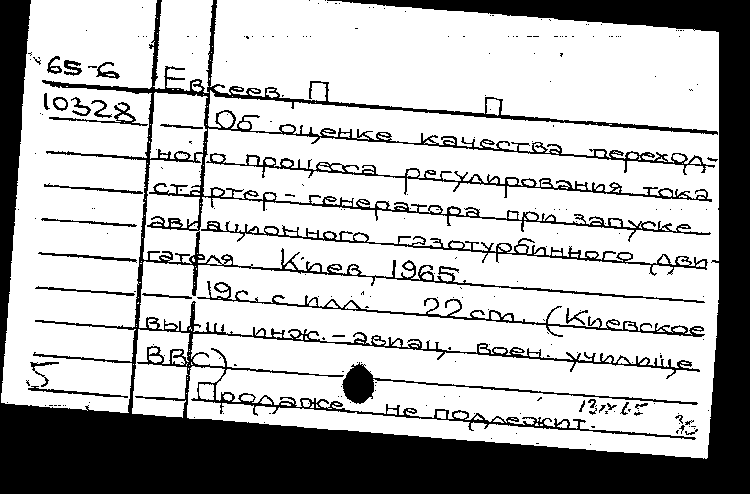 65-6 Евсеев, П П
10328 Об оценке качества переход-
ного процесса регулирования тока
стартер-генератора при запуске
авиационного газотурбинного дви-
гателя. Киев, 1965.
19с. с илл. 22 cm. (Киевское
высш. инж.-авиац. воен. училище
ВВС).
5 Продаже не подлежит.